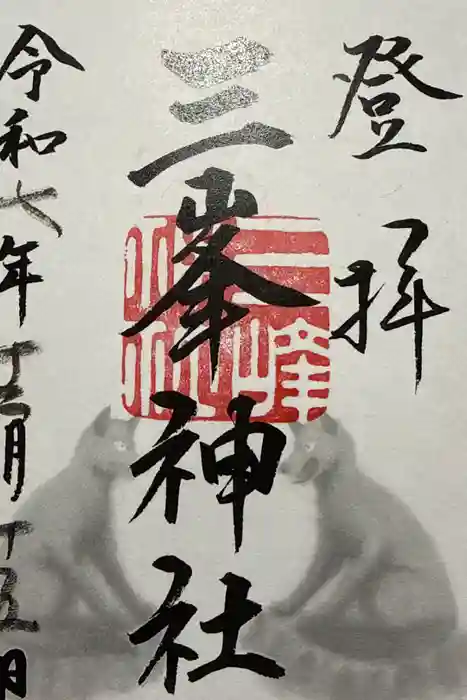 登拝
三峯神社
三峰
神社
令和七年十二月十五日